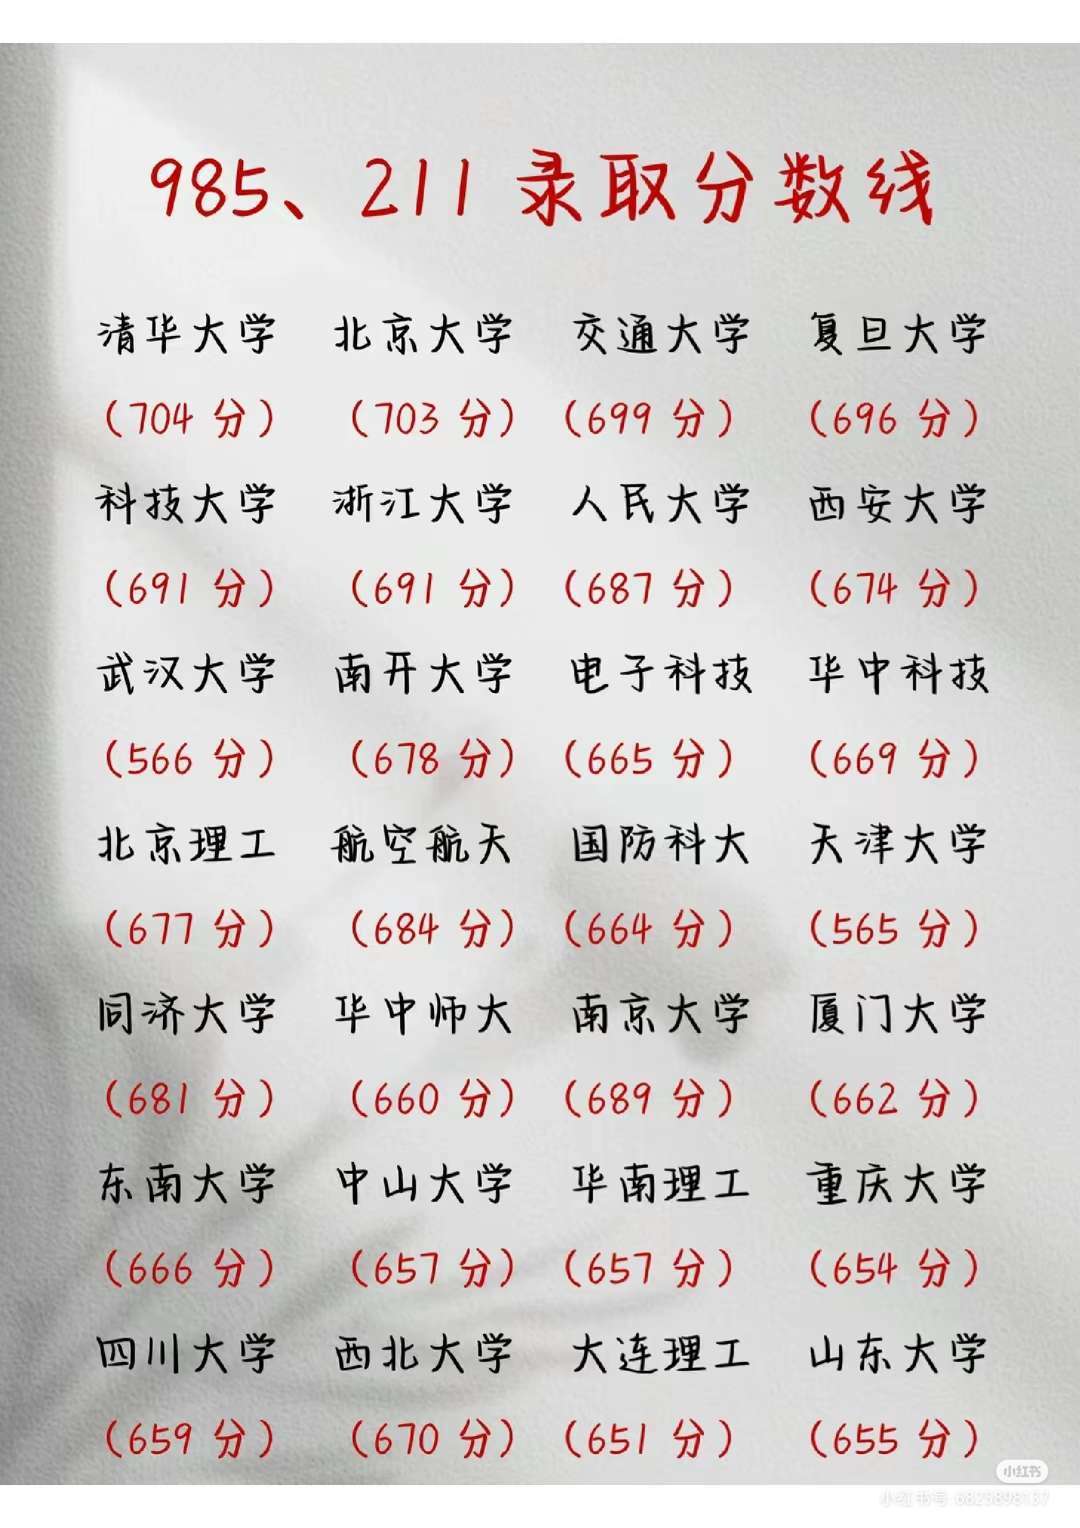 985、211 录取分数线
清华大学 北京大学 交通大学 复旦大学
（704 分） （703 分） （699 分） （696 分）
科技大学 浙江大学 人民大学 西安大学
（691 分） （691 分） （687 分） （674 分）
武汉大学 南开大学 电子科技 华中科技
（566 分） （678 分） （665 分） （669 分）
北京理工 航空航天 国防科大 天津大学
（677 分） （684 分） （664 分） （565 分）
同济大学 华中师大 南京大学 厦门大学
（681 分） （660 分） （689 分） （662 分）
东南大学 中山大学 华南理工 重庆大学
（666 分） （657 分） （657 分） （654 分）
四川大学 西北大学 大连理工 山东大学
（659 分） （670 分） （651 分） （655 分）
小红书
小红书号